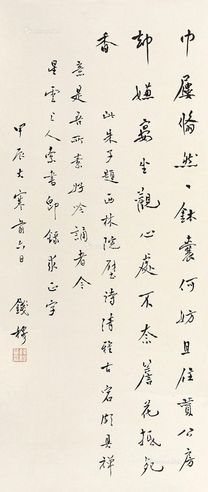 巾屨翛然一鉢囊何妨且住贊公房
却嫌宴坐觀心處不奈簷花抵死
香
此朱子題西林院壁詩清雅古宕頗具禪
意是吾所素好吟誦者今
星雲上人索書即錄求正字
甲辰大寒前六日
錢穆